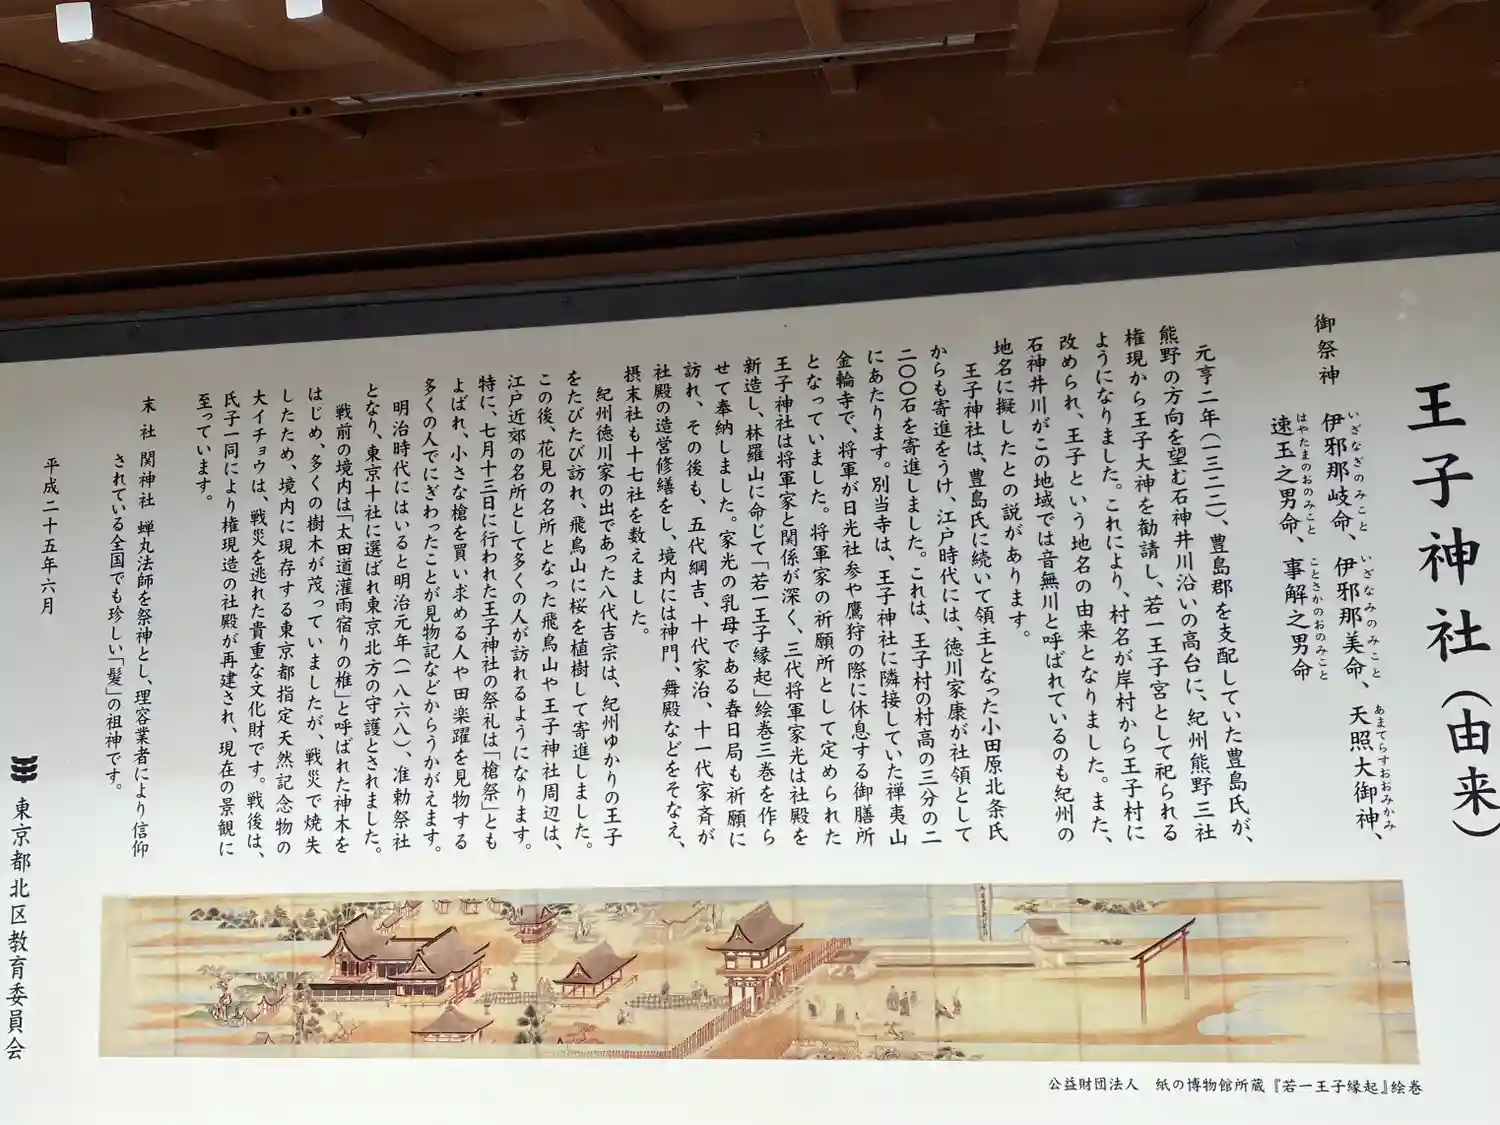 王子神社(由来)
御祭神 伊邪那岐命、伊邪那美命、天照大御神、
いざなぎのみこと いざなみのみこと あまてらすおおみかみ
速玉之男命、事解之男命
はやたまのおのみこと ことさかのおのみこと
元亨二年(一三二二)、豊島郡を支配していた豊島氏が、
熊野の方向を望む石神井川沿いの高台に、紀州熊野三社
権現から王子大神を勧請し、若一王子宮として祀られる
ようになりました。これにより、村名が岸村から王子村に
改められ、王子という地名の由来となりました。また、
石神井川がこの地域では音無川と呼ばれているのも紀州の
地名に擬したとの説があります。
王子神社は、豊島氏に続いて領主となった小田原北条氏
からも寄進をうけ、江戸時代には、徳川家康が社領として
二〇〇石を寄進しました。これは、王子村の村高の三分の二
にあたります。別当寺は、王子神社に隣接していた禅夷山
金輪寺で、将軍が日光社参や鷹狩の際に休息する御膳所
となっていました。将軍家の祈願所として定められた
王子神社は将軍家と関係が深く、三代将軍家光は社殿を
新造し、林羅山に命じて「若一王子縁起」絵巻三巻を作ら
せて奉納しました。家光の乳母である春日局も祈願に
訪れ、その後も、五代綱吉、十代家治、十一代家斉が
社殿の造営修繕をし、境内には神門、舞殿などをそなえ、
摂末社も十七社を数えました。
紀州徳川家の出であった八代吉宗は、紀州ゆかりの王子
をたびたび訪れ、飛鳥山に桜を植樹して寄進しました。
この後、花見の名所となった飛鳥山や王子神社周辺は、
江戸近郊の名所として多くの人が訪れるようになります。
特に、七月十三日に行われた王子神社の祭礼は「槍祭」とも
よばれ、小さな槍を買い求める人や田楽躍を見物する
多くの人でにぎわったことが見物記などからうかがえます。
明治時代にはいると明治元年(一八六八)、准勅祭社
となり、東京十社に選ばれ東京北方の守護とされました。
戦前の境内は「太田道灌雨宿りの椎」と呼ばれた神木を
はじめ、多くの樹木が茂っていましたが、戦災で焼失
したため、境内に現存する東京都指定天然記念物の
大イチョウは、戦災を逃れた貴重な文化財です。戦後は、
氏子一同により権現造の社殿が再建され、現在の景観に
至っています。
末社 関神社 蝉丸法師を祭神とし、理容業者により信仰
されている全国でも珍しい「髪」の祖神です。
平成二十五年六月
東京都北区教育委員会
公益財団法人 紙の博物館所蔵『若一王子縁起』絵巻